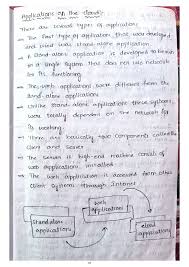 Applications on the cloud:-
There are several types of application.
→ The first type of application that was developed
and used was stand-alone application.
→ A stand-alone application is developed to be run
on a single system that does not use network
for its functioning.
→ The web application were different from the
stand-alone application.
→ Unlike stand-alone application these systems
were totally dependent on the network for
its working.
→ There are basically two components called the
client and server.
→ The server is high-end machine consist of
web application installed.
→ The web application is accessed from other
client systems through Internet
web
application
Stand-alone
application
cloud
application